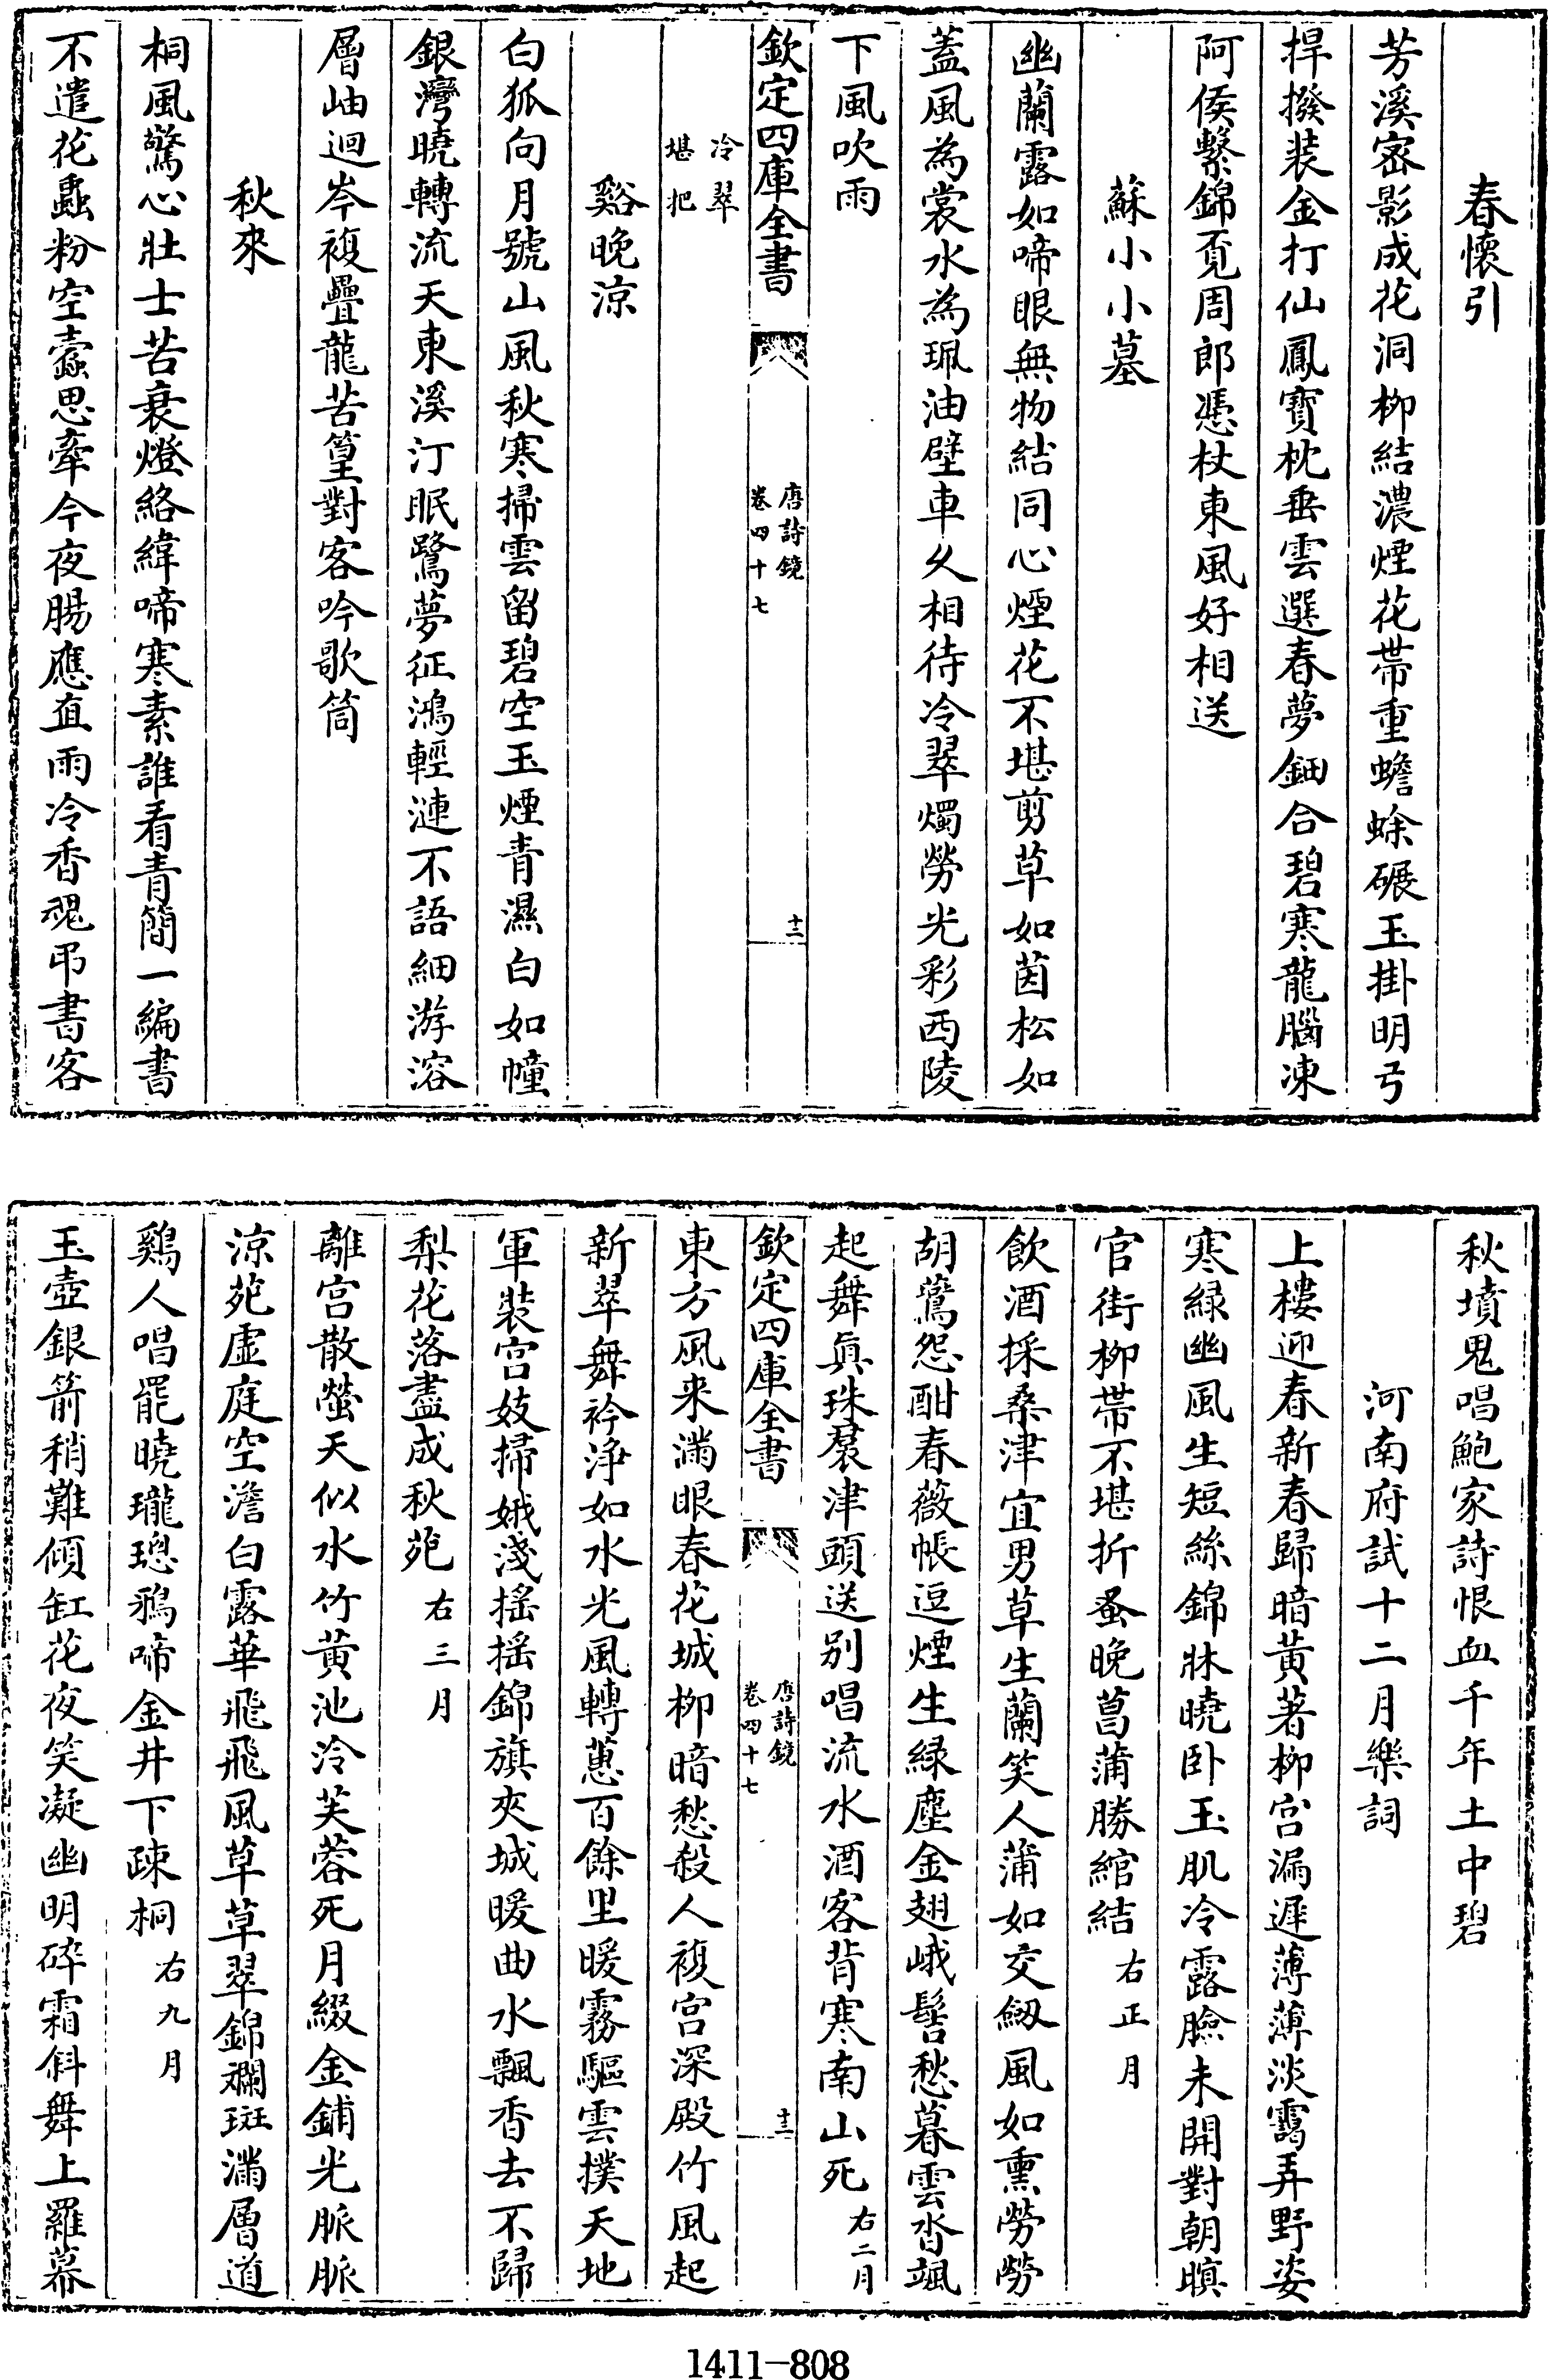 春懷引
芳溪宻影成花洞柳結濃煙花帶重蟾蜍碾玉掛明弓
捍撥装金打仙鳳寶枕垂雲選春夢鈿合碧寒龍腦凍
阿侯繫錦覓周郎憑杖東風好相送
蘇小小墓
幽蘭露如啼眼無物結同心煙花不堪剪草如茵松如
蓋風為裳水為珮油壁車久相待冷翠燭勞光彩西陵
下風吹雨
欽定四庫全書
唐詩鏡
卷四十七
十二
冷翠
堪把
谿晚涼
白狐向月號山風秋寒掃雲留碧空玉煙青濕白如幢
銀灣曉轉流天東溪汀眠鷺夢征鴻輕漣不語細游溶
層岫迴岑複疊龍苦篁對客吟歌筒
秋來
桐風驚心壯士苦衰燈絡緯啼寒素誰看青簡一編書
不遣花蟲粉空蠹思牽今夜腸應直雨冷香魂弔書客
秋墳鬼唱鮑家詩恨血千年土中碧
河南府試十二月樂詞
上樓迎春新春歸暗黄著柳宫漏遲薄薄淡靄弄野姿
寒緑幽風生短絲錦牀曉卧玉肌冷露臉未開對朝暝
官街柳帶不堪折蚤晚菖蒲勝綰結右正月
飲酒採桑津宜男草生蘭笑人蒲如交劔風如熏勞勞
胡鶯怨酣春薇帳逗煙生緑塵金翅峨髻愁暮雲沓颯
起舞眞珠裠津頭送别唱流水酒客背寒南山死右二月
欽定四庫全書
唐詩鏡
卷四十七
十三
東方風来滿眼春花城柳暗愁殺人複宫深殿竹風起
新翠舞衿浄如水光風轉蕙百餘里暖霧驅雲撲天地
軍裝宫妓掃娥淺摇摇錦旗夾城暖曲水飄香去不歸
梨花落盡成秋苑右三月
離宫散螢天似水竹黄池冷芙蓉死月綴金鋪光脈脈
涼苑虚庭空澹白露華飛飛風草草翠錦斕斑滿層道
鷄人唱罷曉瓏璁鴉啼金井下疎桐右九月
玉壺銀箭稍難傾缸花夜笑凝幽明碎霜斜舞上羅幕
1411-808